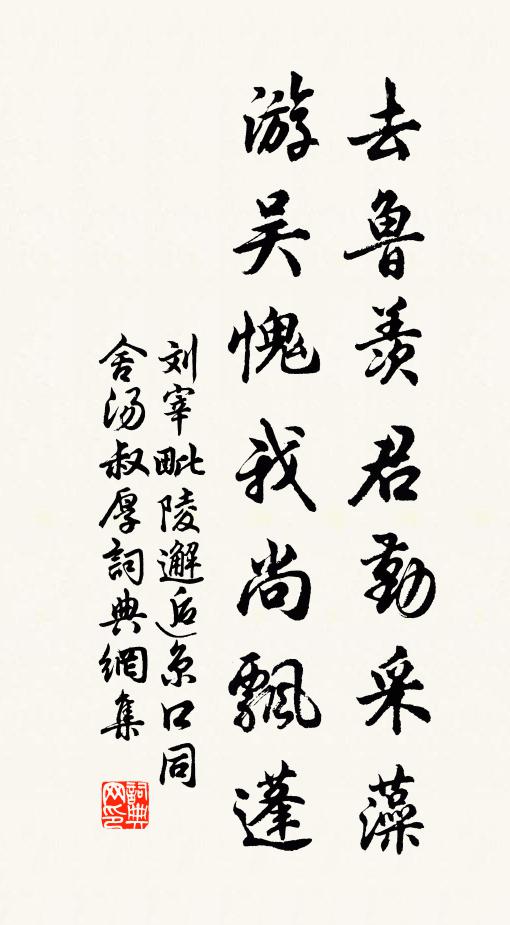 去鲁羡君勤采藻
游吴愧我尚飘蓬
刘宰毗陵邂逅京口同
舍汤叔厚詞典網集
詞典
网印